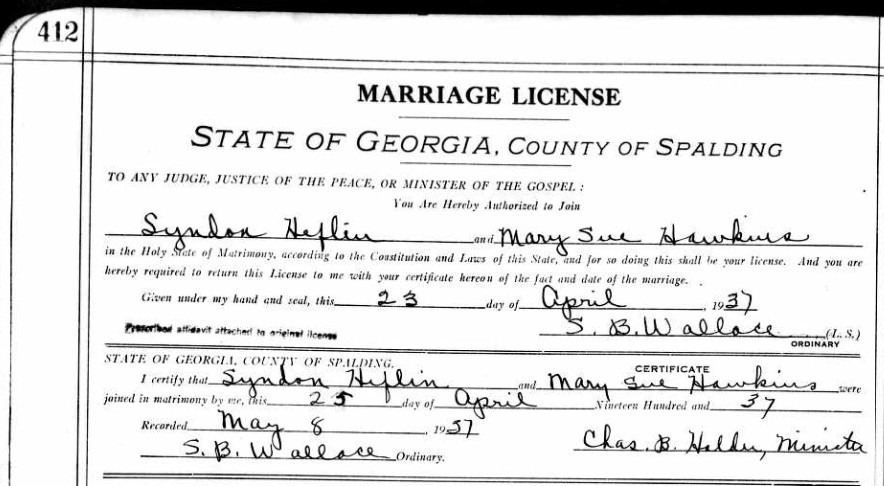 412
MARRIAGE LICENSE
STATE OF GEORGIA, COUNTY OF SPALDING
TO ANY JUDGE, JUSTICE OF THE PEACE, OR MINISTER OF THE GOSPEL:
You Are Hereby Authorized to Join
Syndon Heflin and Mary Sue Hawkins
in the Holy State of Matrimony, according to the Constitution and Laws of this State, and for so doing this shall be your license. And you are
hereby required to return this License to me with your certificate hereon of the fact and date of the marriage.
Given under my hand and seal, this 23 day of April, 1937
Prescribed affidavit attached to original license S. B. Wallace (L. S.)
ORDINARY
STATE OF GEORGIA, COUNTY OF SPALDING. CERTIFICATE
I certify that Syndon Heflin and Mary Sue Hawkins were
joined in matrimony by me, this 25 day of April Nineteen Hundred and 37
Recorded May 8, 1937
S. B. Wallace Ordinary. Chas. B. Holder, Minister